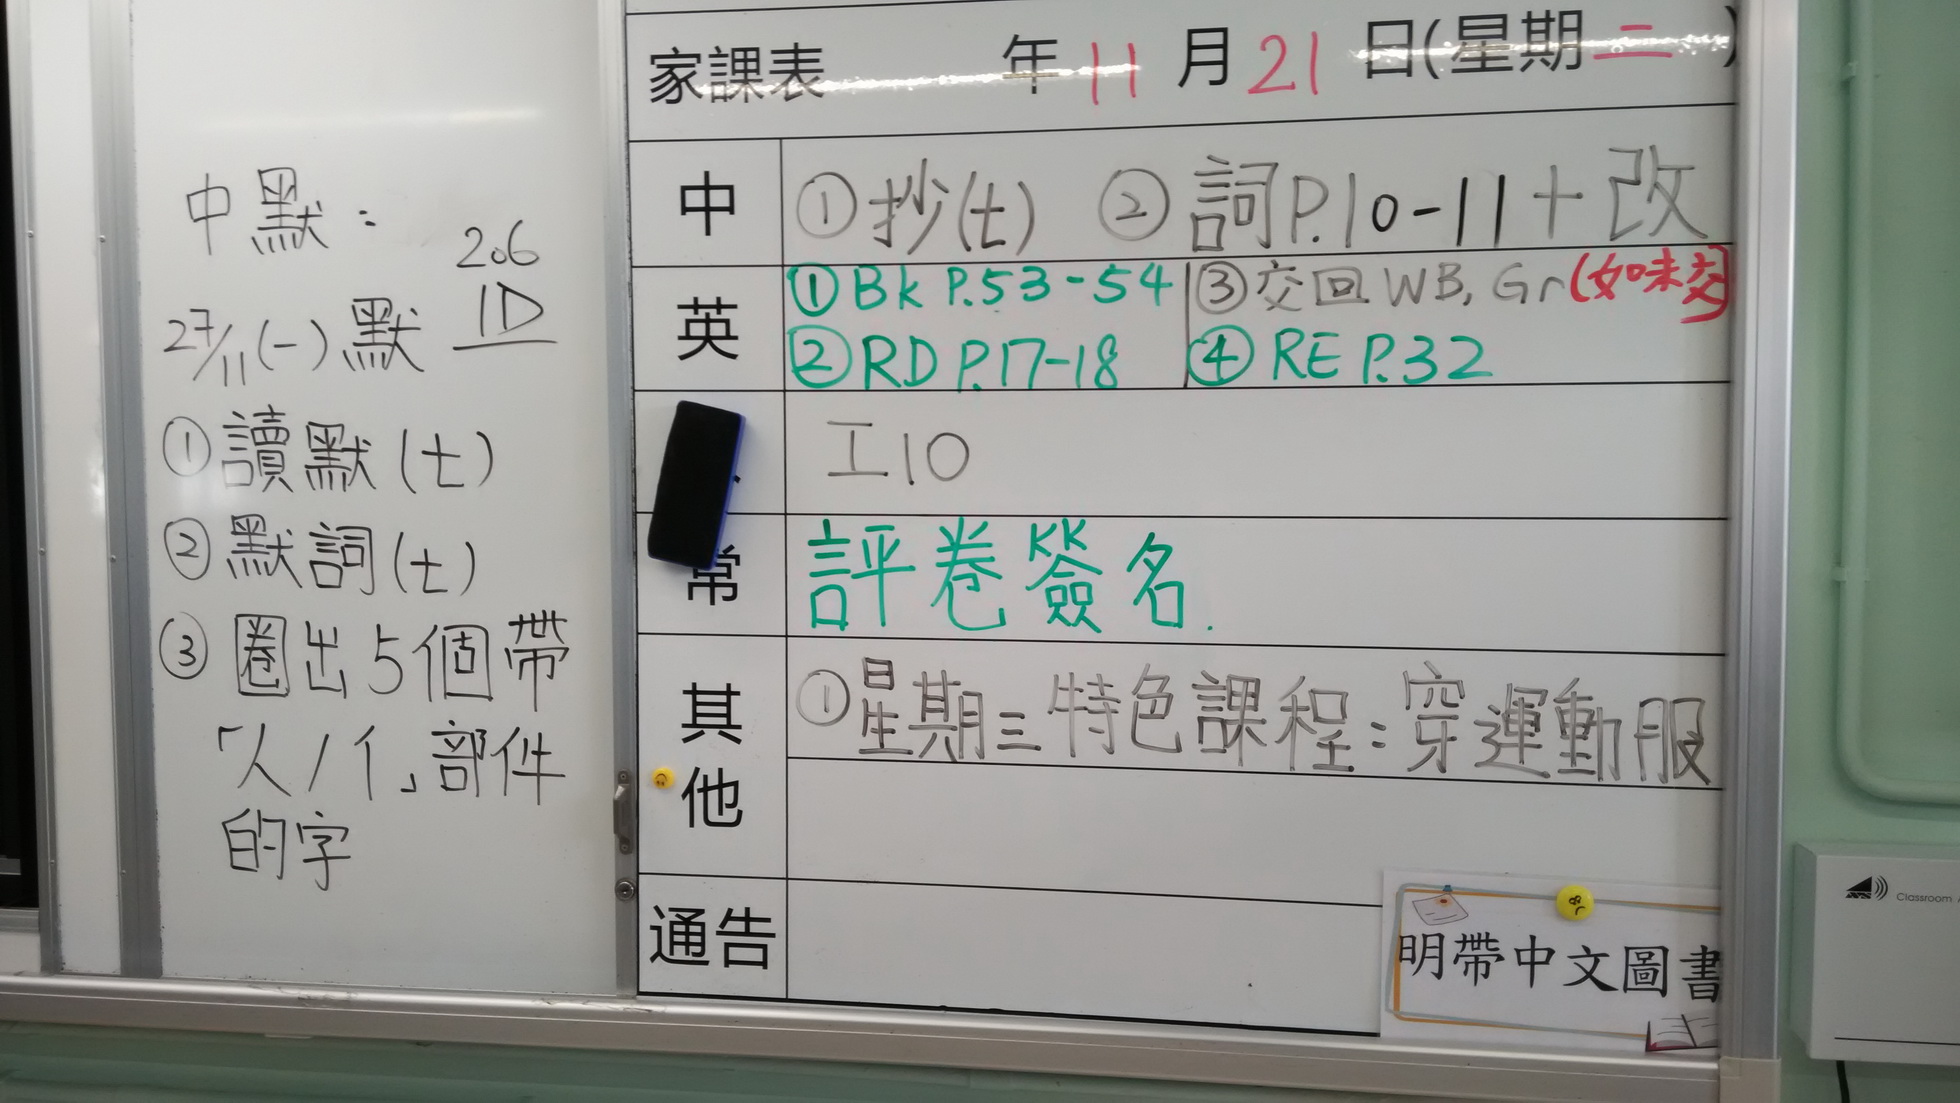 中默：
206
1D
27/11(一)默
①讀默(七)
②默詞(七)
③圈出5個帶
「人/亻」部件
的字
家課表 年11月21日(星期二)
中 ①抄(七) ②詞P.10-11+改
英 ①Bk P.53-54 ③交回WB, Gr(如未交)
②RD P.17-18 ④RE P.32
工10
常 評卷簽名.
其他 ①星期三特色課程：穿運動服
通告
明帶中文圖書
Classroom